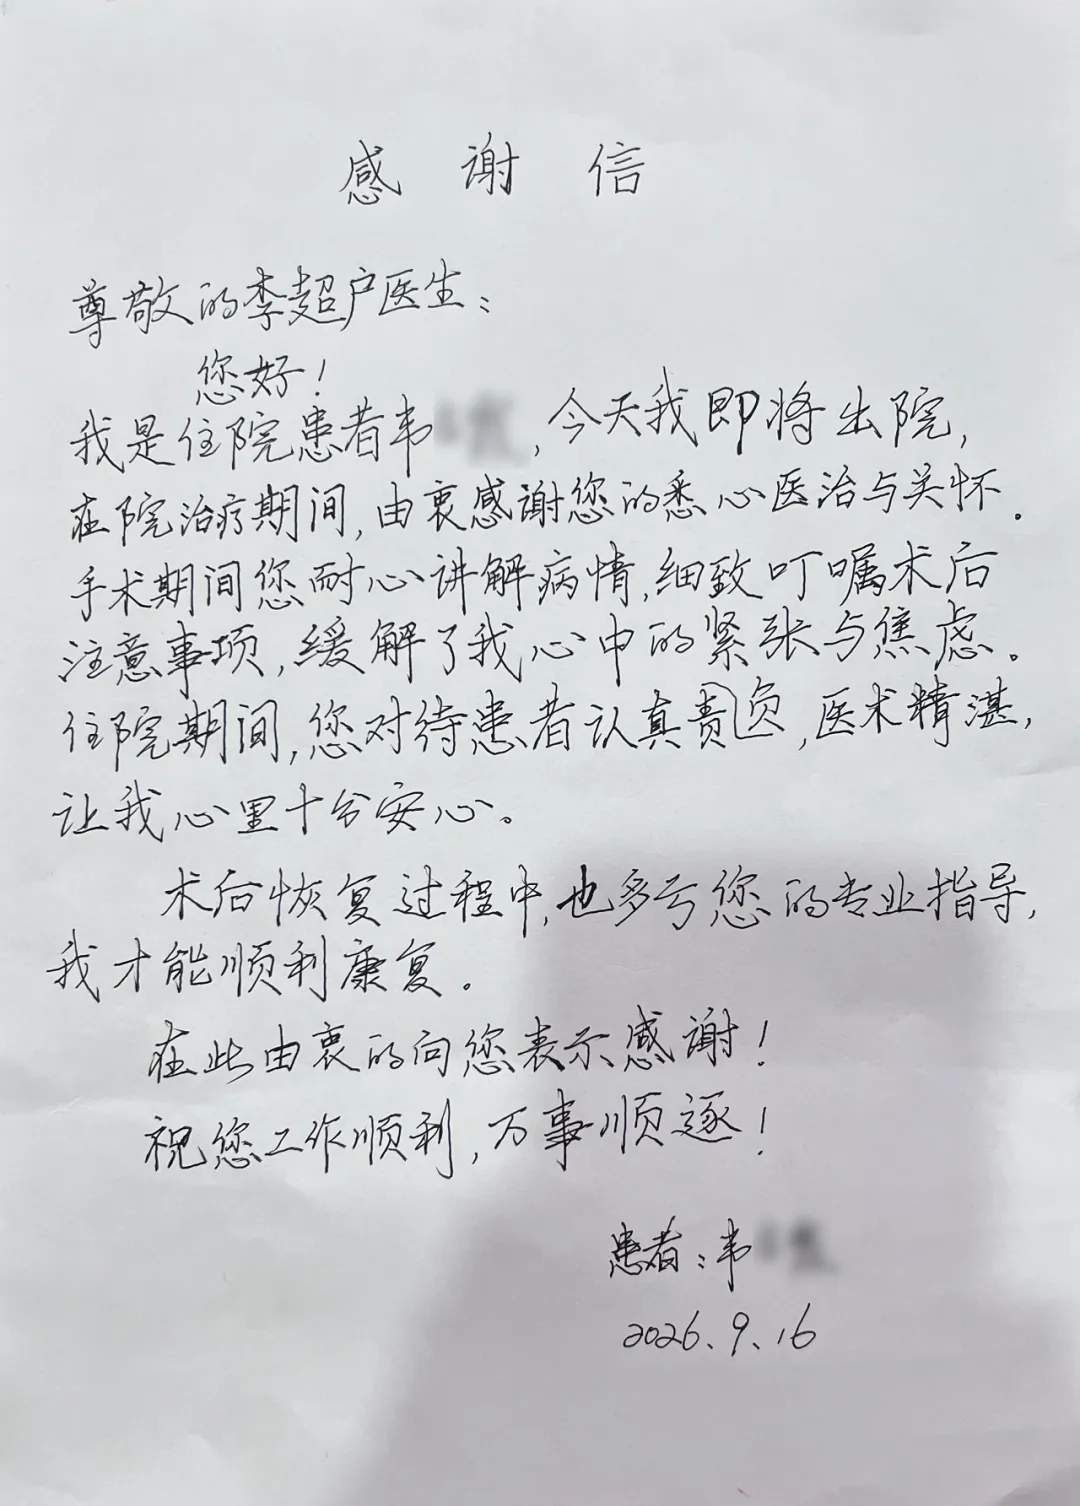 感谢信
尊敬的李超户医生：
您好！
我是住院患者韦，今天我即将出院，
在院治疗期间，由衷感谢您的悉心医治与关怀．
手术期间您耐心讲解病情，细致叮嘱术后
注意事项，缓解了我心中的紧张与焦虑。
住院期间，您对待患者认真责负，医术精湛，
让我心里十分安心。
术后恢复过程中，也多亏您的专业指导，
我才能顺利康复。
在此由衷的向您表示感谢！
祝您工作顺利，万事顺逐！
患者：韦
2026.9.16